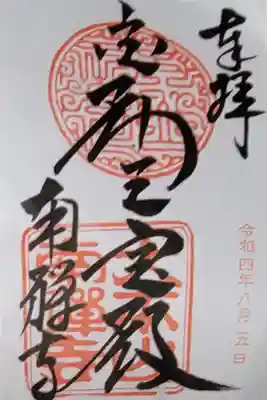 奉拝
令和四年八月二五日
金剛王宝殿
南禅寺